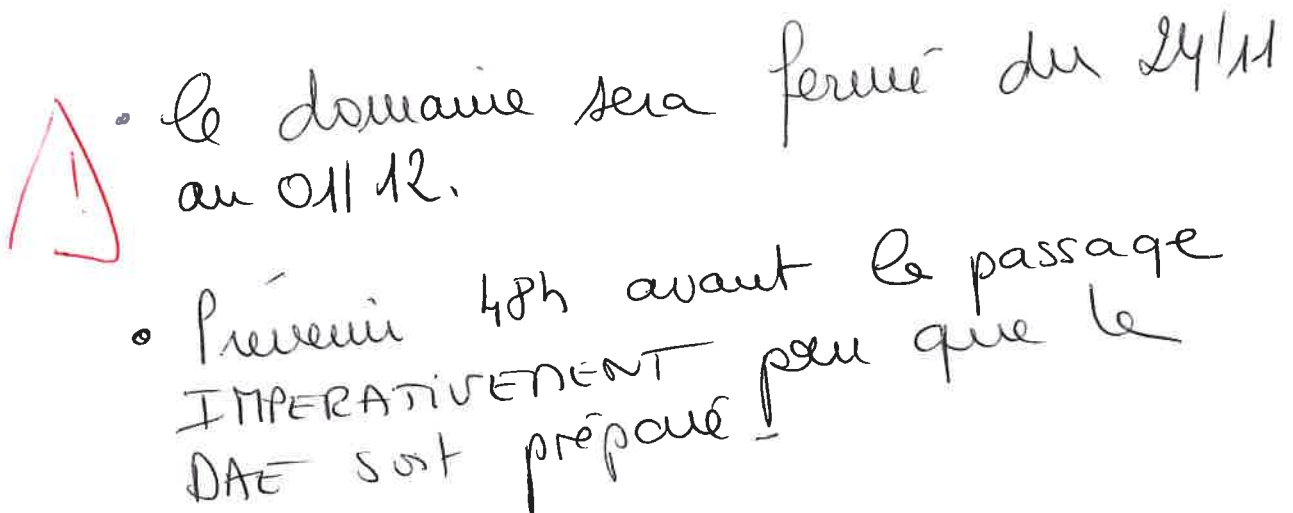 • Le domaine sera fermé du 24/11
au 01/12.
• Prévenir 48h avant le passage
IMPERATIVEMENT pour que le
DAE soit préparé.